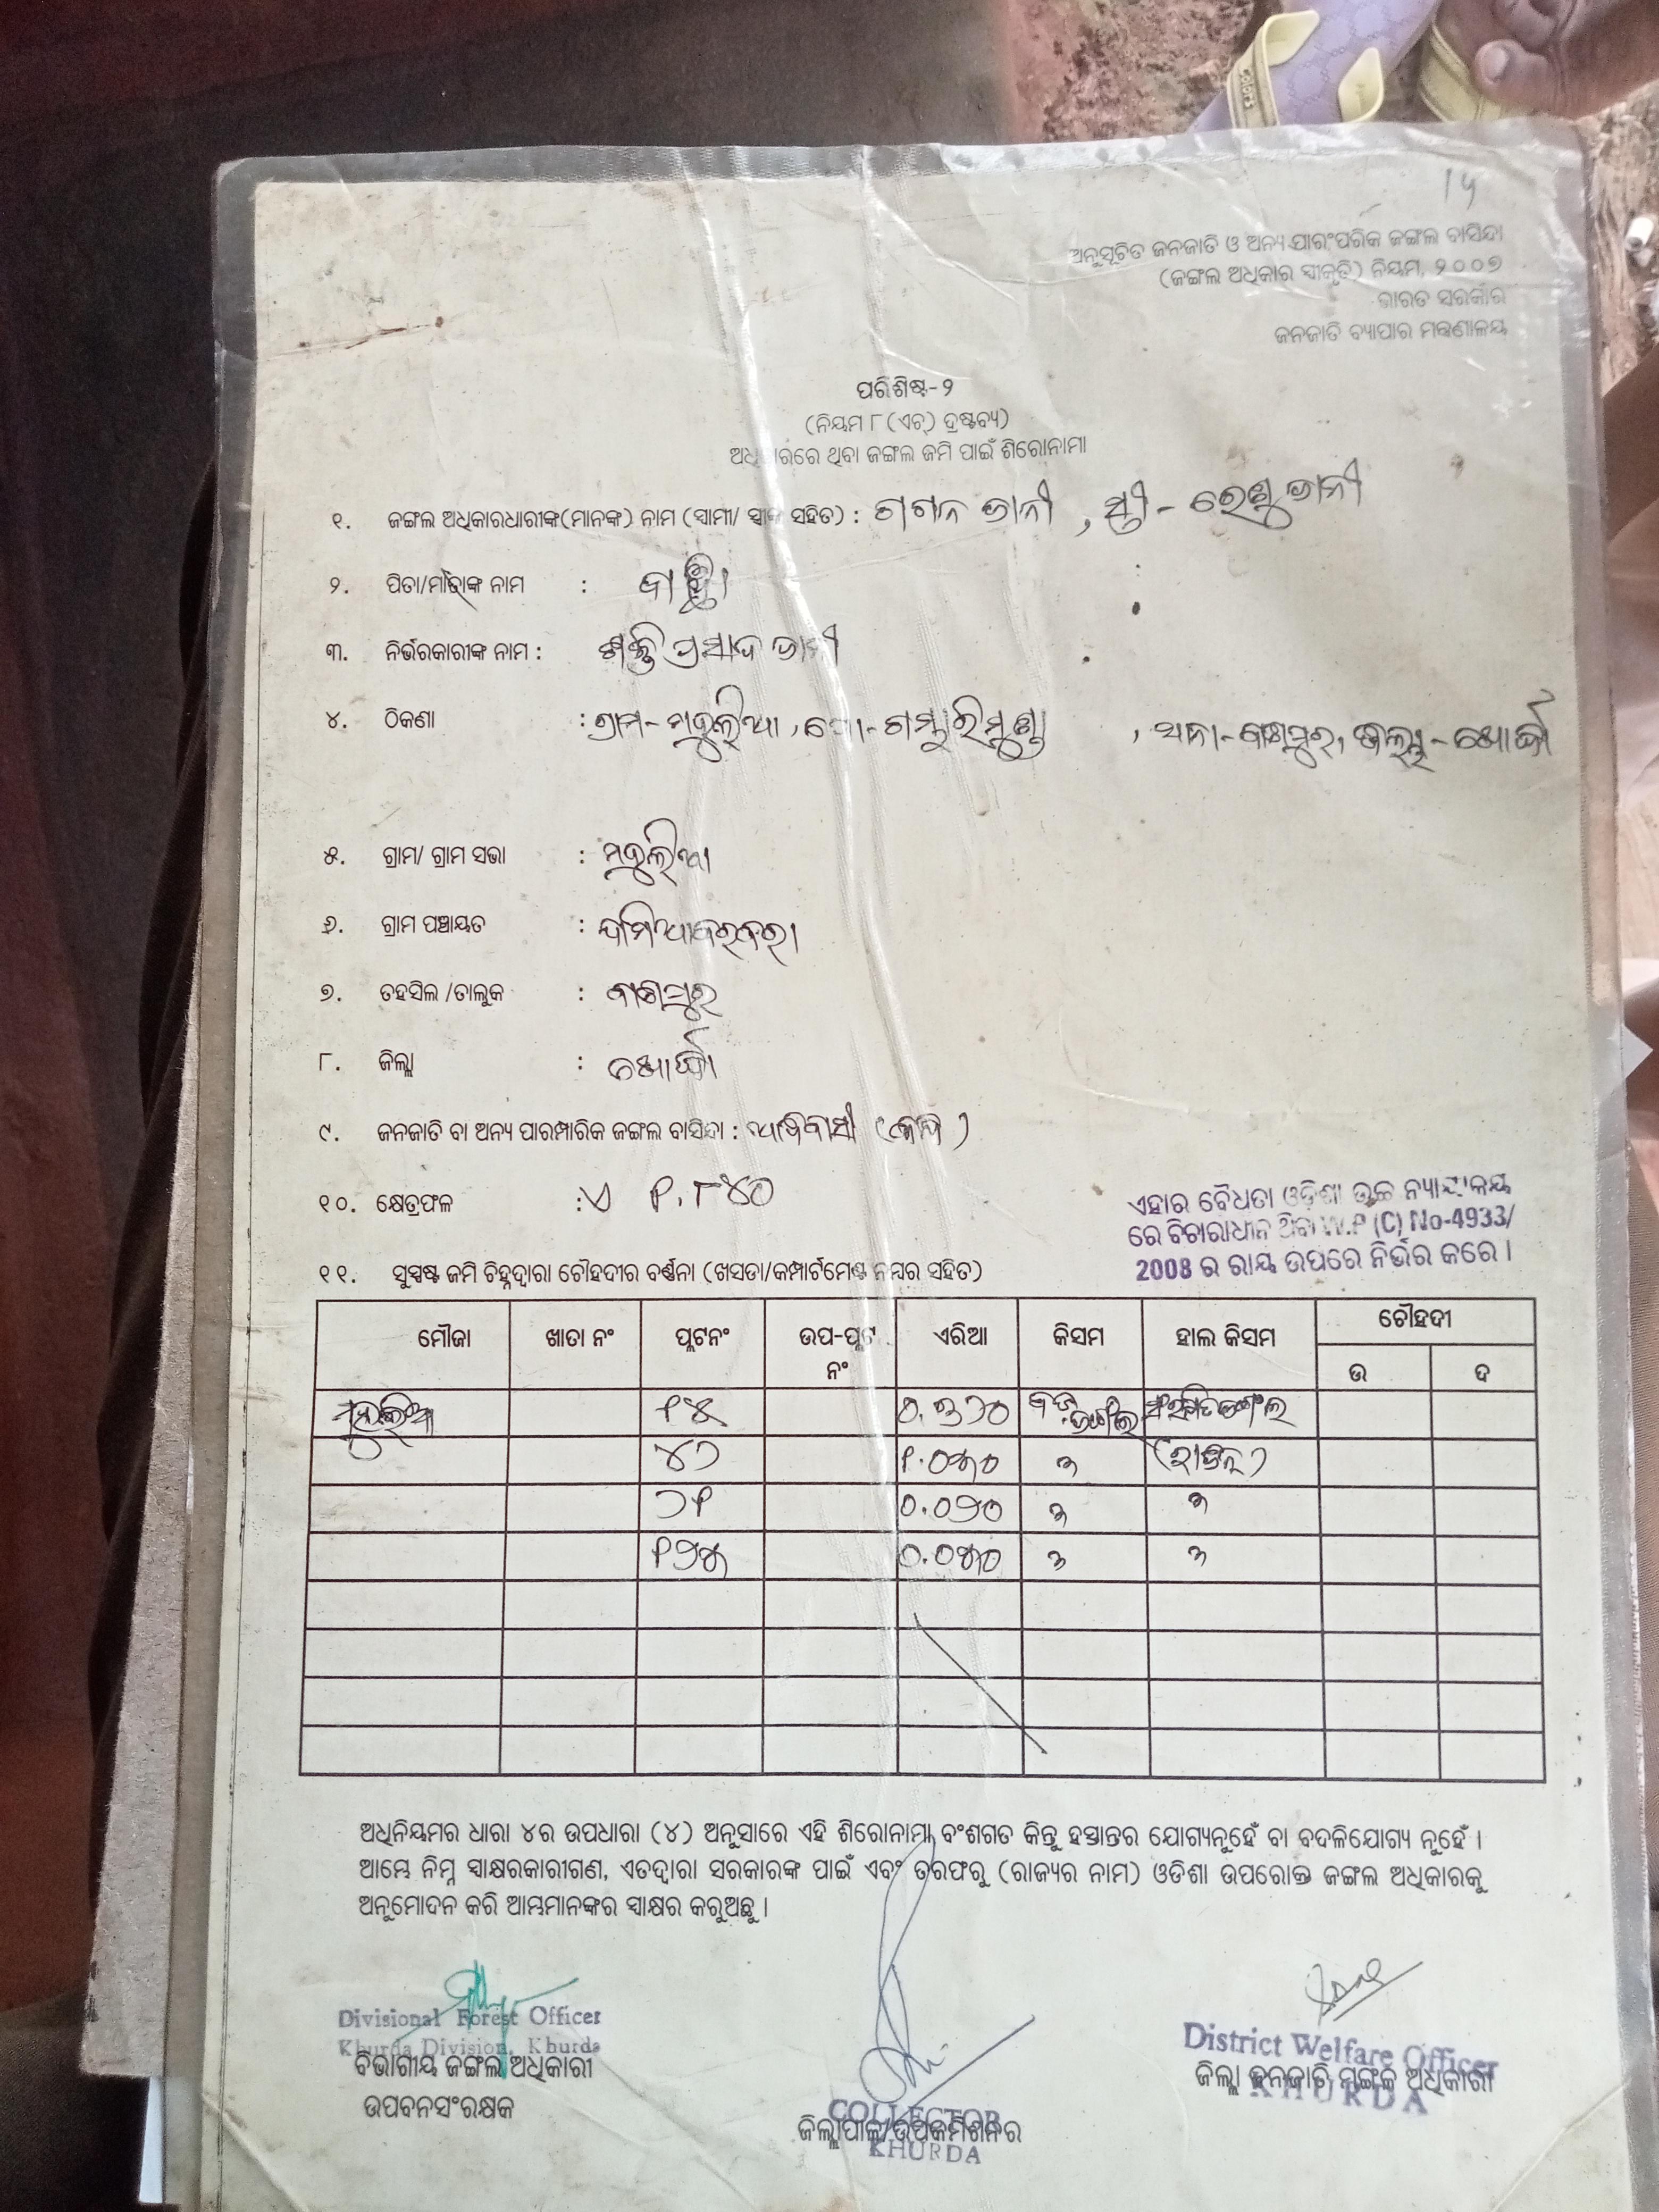 ୧୫
ଅନୁସୂଚିତ ଜନଜାତି ଓ ଅନ୍ୟ ପାରଂପରିକ ଜଙ୍ଗଲ ବାସିନ୍ଦା
(ଜଙ୍ଗଲ ଅଧିକାର ସ୍ୱୀକୃତି) ନିୟମ, ୨୦୦୭
ଭାରତ ସରକାର
ଜନଜାତି ବ୍ୟାପାର ମନ୍ତ୍ରଣାଳୟ
ପରିଶିଷ୍ଟ-୨
(ନିୟମ ୮ (ଏଚ୍) ଦ୍ରଷ୍ଟବ୍ୟ)
ଅଧିକାରରେ ଥିବା ଜଙ୍ଗଲ ଜମି ପାଇଁ ଶିରୋନାମା
୧. ଜଙ୍ଗଲ ଅଧିକାରଧାରୀଙ୍କ(ମାନଙ୍କ) ନାମ (ସ୍ୱାମୀ/ ସ୍ତ୍ରୀଙ୍କ ସହିତ) : ଗଗନ ଜାନୀ , ସ୍ତ୍ରୀ - ରେଣୁ ଜାନୀ
୨. ପିତା/ମାତାଙ୍କ ନାମ :
୩. ନିର୍ଭରକାରୀଙ୍କ ନାମ : ଶକ୍ତି ପ୍ରସାଦ ଜାନୀ
୪. ଠିକଣା : ଗ୍ରାମ- ମଜୁଲିଆ , ପୋ-ଗମ୍ଭାରିମୁଣ୍ଡା , ଥାନା-ବାଣପୁର, ଜିଲ୍ଲା - ଖୋର୍ଦ୍ଧା
୫. ଗ୍ରାମ/ ଗ୍ରାମ ସଭା : ମଜୁଲିଆ
୬. ଗ୍ରାମ ପଞ୍ଚାୟତ :
୭. ତହସିଲ /ତାଲୁକ : ବାଣପୁର
୮. ଜିଲ୍ଲା : ଖୋର୍ଦ୍ଧା
୯. ଜନଜାତି ବା ଅନ୍ୟ ପାରମ୍ପାରିକ ଜଙ୍ଗଲ ବାସିନ୍ଦା : ଆଦିବାସୀ (କନ୍ଧ)
୧୦. କ୍ଷେତ୍ରଫଳ : ଏ ୧.୮୪୦
ଏହାର ବୈଧତା ଓଡ଼ିଶା ଉଚ୍ଚ ନ୍ୟାୟାଳୟ
ରେ ବିଚାରାଧୀନ ଥିବା W.P (C) No-4933/
2008 ର ରାୟ ଉପରେ ନିର୍ଭର କରେ ।
୧୧. ସୁସ୍ପଷ୍ଟ ଜମି ଚିହ୍ନଦ୍ୱାରା ଚୌହଦୀର ବର୍ଣ୍ଣନା (ଖସଡା/କମ୍ପାର୍ଟମେଣ୍ଟ ନମ୍ବର ସହିତ)
ମୌଜା ଖାତା ନଂ ପ୍ଲଟନଂ ଉପ-ପ୍ଲଟ ନଂ ଏରିଆ କିସମ ହାଲ କିସମ ଚୌହଦୀ
ଉ ଦ
ମଜୁଲିଆ ୧୫ ୦.୭୨୦
୪୨ ୧.୦୫୦ ଏ
୨୧ ୦.୦୨୦ ଏ ଏ
୧୨୫ ୦.୦୫୦ ଏ ଏ
ଅଧିନିୟମର ଧାରା ୪ର ଉପଧାରା (୪) ଅନୁସାରେ ଏହି ଶିରୋନାମା ବଂଶଗତ କିନ୍ତୁ ହସ୍ତାନ୍ତର ଯୋଗ୍ୟନୁହେଁ ବା ବଦଳିଯୋଗ୍ୟ ନୁହେଁ ।
ଆମ୍ଭେ ନିମ୍ନ ସ୍ୱାକ୍ଷରକାରୀଗଣ, ଏତଦ୍ୱାରା ସରକାରଙ୍କ ପାଇଁ ଏବଂ ତରଫରୁ (ରାଜ୍ୟର ନାମ) ଓଡିଶା ଉପରୋକ୍ତ ଜଙ୍ଗଲ ଅଧିକାରକୁ
ଅନୁମୋଦନ କରି ଆମ୍ଭମାନଙ୍କର ସ୍ୱାକ୍ଷର କରୁଅଛୁ ।
Divisional Forest Officer
Khurda Division, Khurda
ବିଭାଗୀୟ ଜଙ୍ଗଲ ଅଧିକାରୀ
ଉପବନସଂରକ୍ଷକ
COLLECTOR
ଜିଲ୍ଲାପାଳ/ଉପକମିଶନର
KHURDA
District Welfare Officer
ଜିଲ୍ଲା ଜନଜାତି ମଙ୍ଗଳ ଅଧିକାରୀ
KHURDA